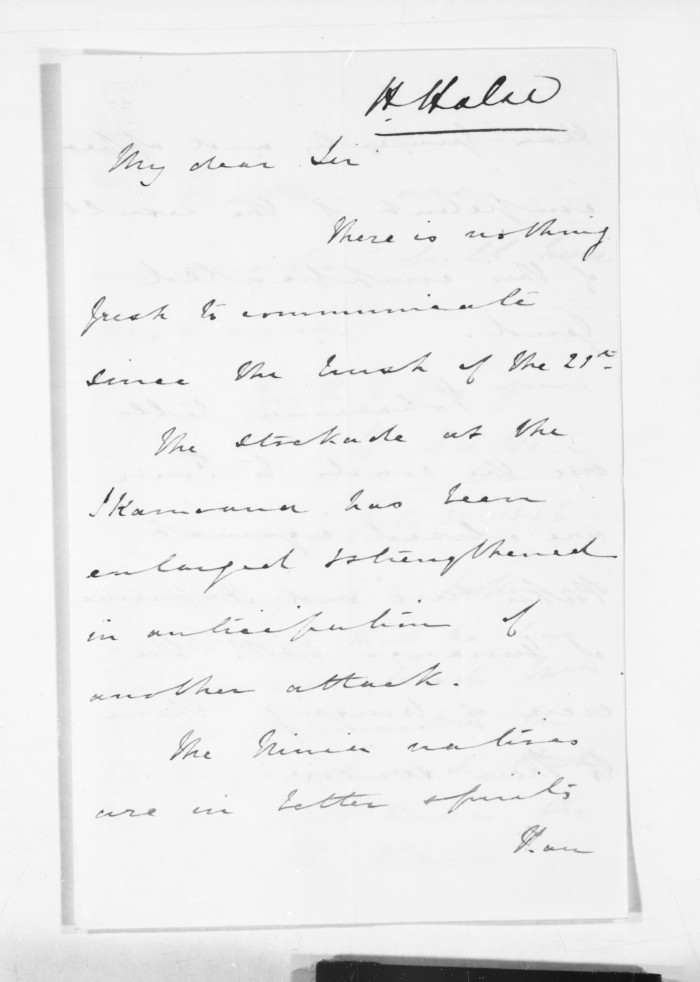 H. Halse
My dear Sir
There is nothing
fresh to communicate
since the brush of the 29th
The stockade at the
Ikamoana has been
enlarged & strengthened
in anticipation of
another attack.
The Ninia natives
are in better spirits
than